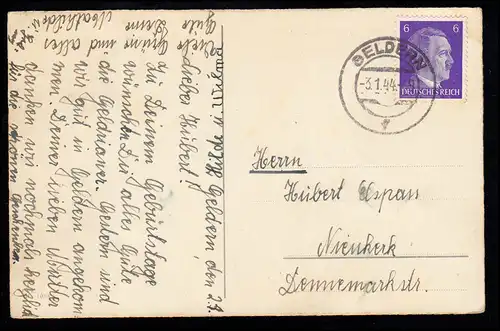 Geldern, den 2.1.
Lieber Hubert!
Zu Deinem Geburtstage
wünschen Dir alles Gute
die Geldianer. Gestern sind
wir gut in Geldern angekom-
men. Deiner lieben Mutter
danken wir nochmals herzlich
für die schönen
Viele
Grüße
und alles
Mathilde
6 6
DEUTSCHES REICH
GELDERN
-3.1.44
Herrn
Hubert Espan
Nieukerk
Dennemarkstr.